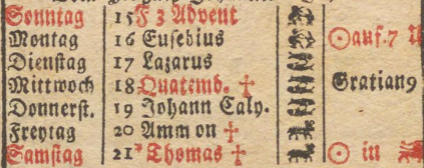 Sonntag 15 F 3 Advent
Montag 16 Eusebius ☉ auf. 7
Dienstag 17 Lazarus
Mittwoch 18 Quatemb. † Gratian9
Donnerst. 19 Johann Caly.
Freytag 20 Ammon †
Samstag 21 Thomas † ☉ in